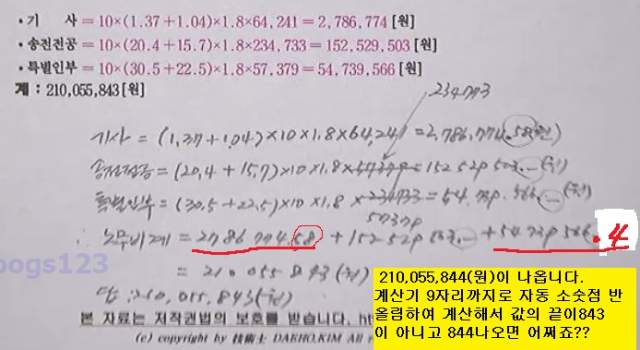 • 기 사 = 10×(1.37+1.04)×1.8×64,241 = 2,786,774 [원]
• 송전전공 = 10×(20.4+15.7)×1.8×234,733 = 152,529,503 [원]
• 특별인부 = 10×(30.5+22.5)×1.8×57,379 = 54,739,566 [원]
계 : 210,055,843[원]
234733
기사 = (1,37+1,04)×10×1.8×64,241 = 2,786,774.58(원)
송전전공 = (20,4+15,7)×10×1.8×57379 = 152 529 503.—(원)
특별인부 = (30.5+22.5)×10×1.8×234733 = 54.739.566.—(원)
57379
∴ 노무비계 = 2786774.58 + 152 529 503.— + 54 739 566 .4
= 210 055 843 (원)
답 : 210,055,843(원)
ogs123
본 자료는 저작권법의 보호를 받습니다.
(c) copyright by 技術士 DAKHO.KIM All
210,055,844(원)이 나옵니다.
계산기 9자리까지로 자동 소숫점 반
올림하여 계산해서 값의 끝이843
이 아니고 844나오면 어쩌죠??